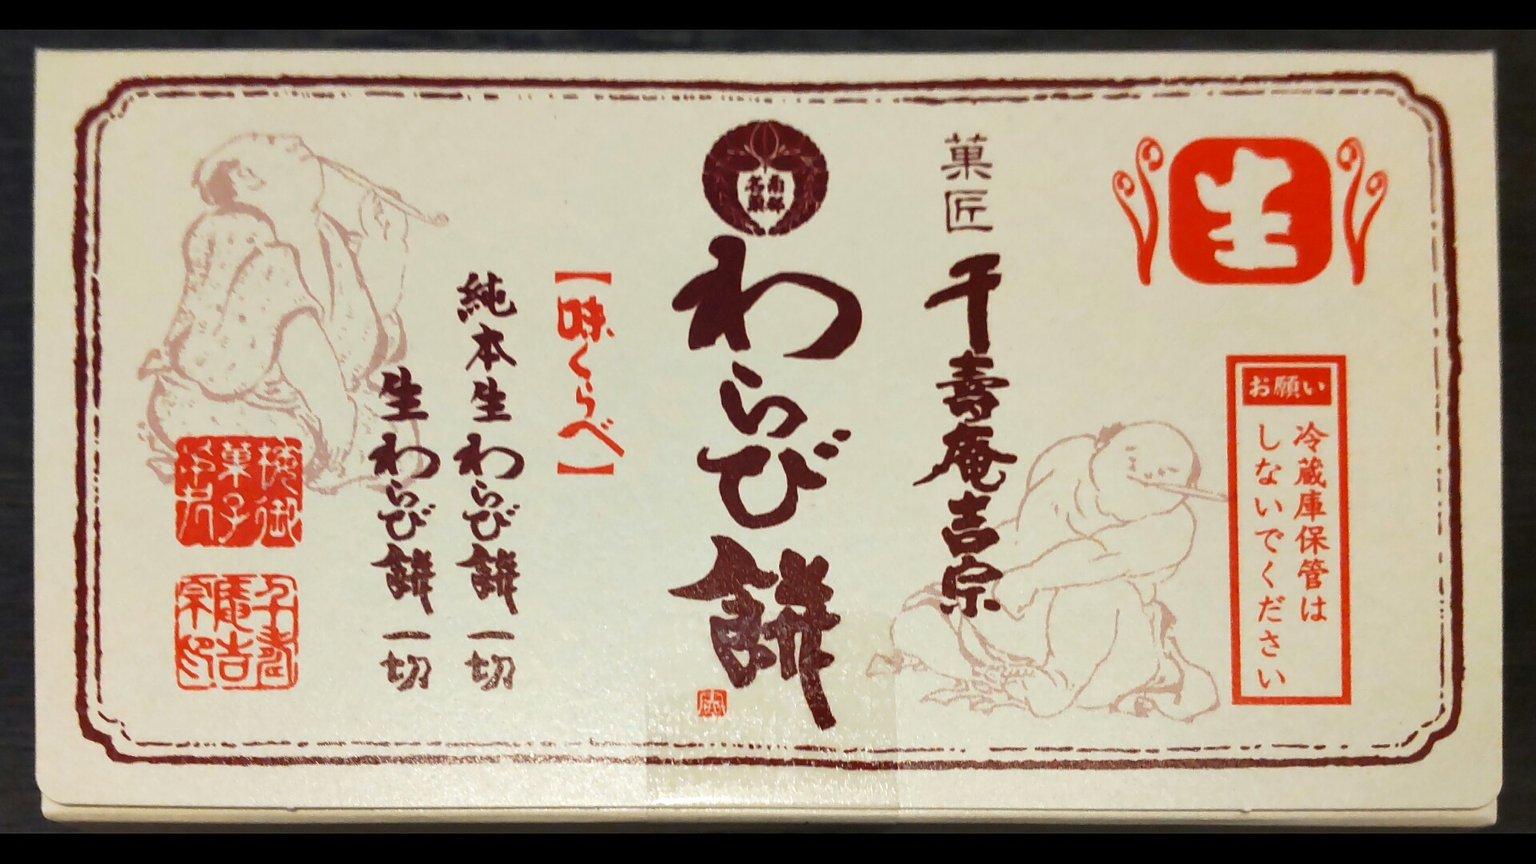 生
お願い
冷蔵庫保管は
しないでください
菓匠 千壽庵吉宗
南都
名菓
わらび餅
【味くらべ】
純本生わらび餅 一切
生わらび餅 一切
千壽
庵吉
宗印